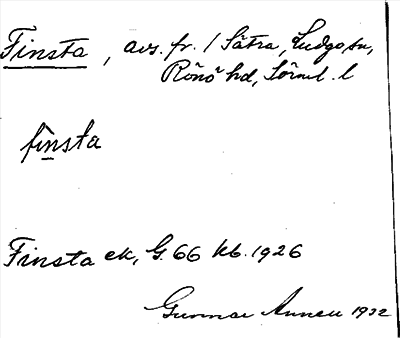 Finsta, avs. fr. / Sätra, Ludgo sn,
Rönö hd, Sörml. l
finsta
Finsta ek, G. 66 kb. 1926
Gunnar 1932